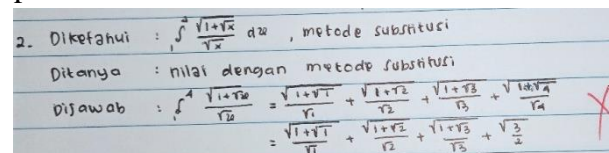 2. Diketahui : ∫₁² √(1+√x)/√x dx , metode substitusi
Ditanya : nilai dengan metode substitusi
Dijawab : ∫₁⁴ √(1+√x)/√x = √(1+√1)/√1 + √(1+√2)/√2 + √(1+√3)/√3 + √(1+√4)/√4
= √(1+√1)/√1 + √(1+√2)/√2 + √(1+√3)/√3 + √(3/2)